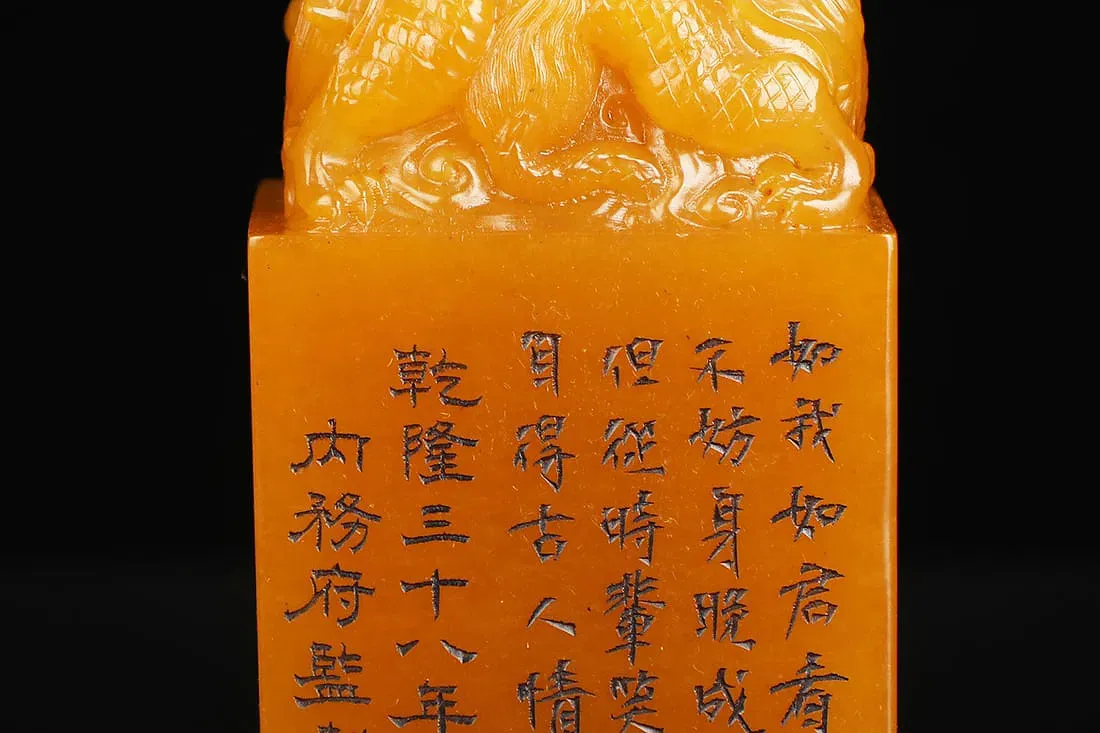 如我如君看
不妨身晚成
但從時輩笑
自得古人情
乾隆三十八年
内務府監